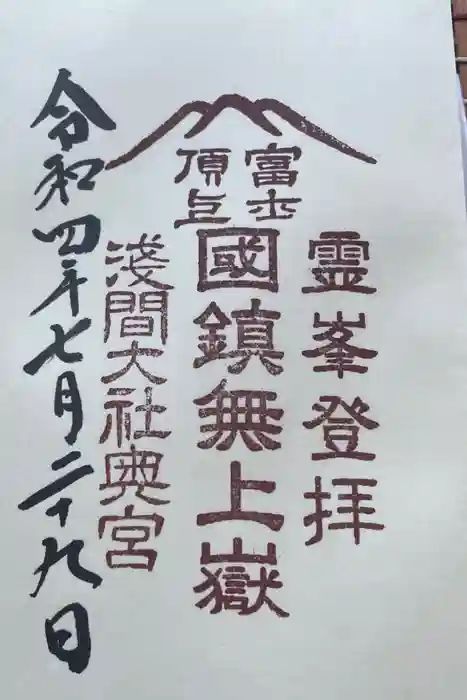 霊峯登拝
富士
頂上
國鎮無上嶽
淺間大社奥宮
令和四年七月二十九日